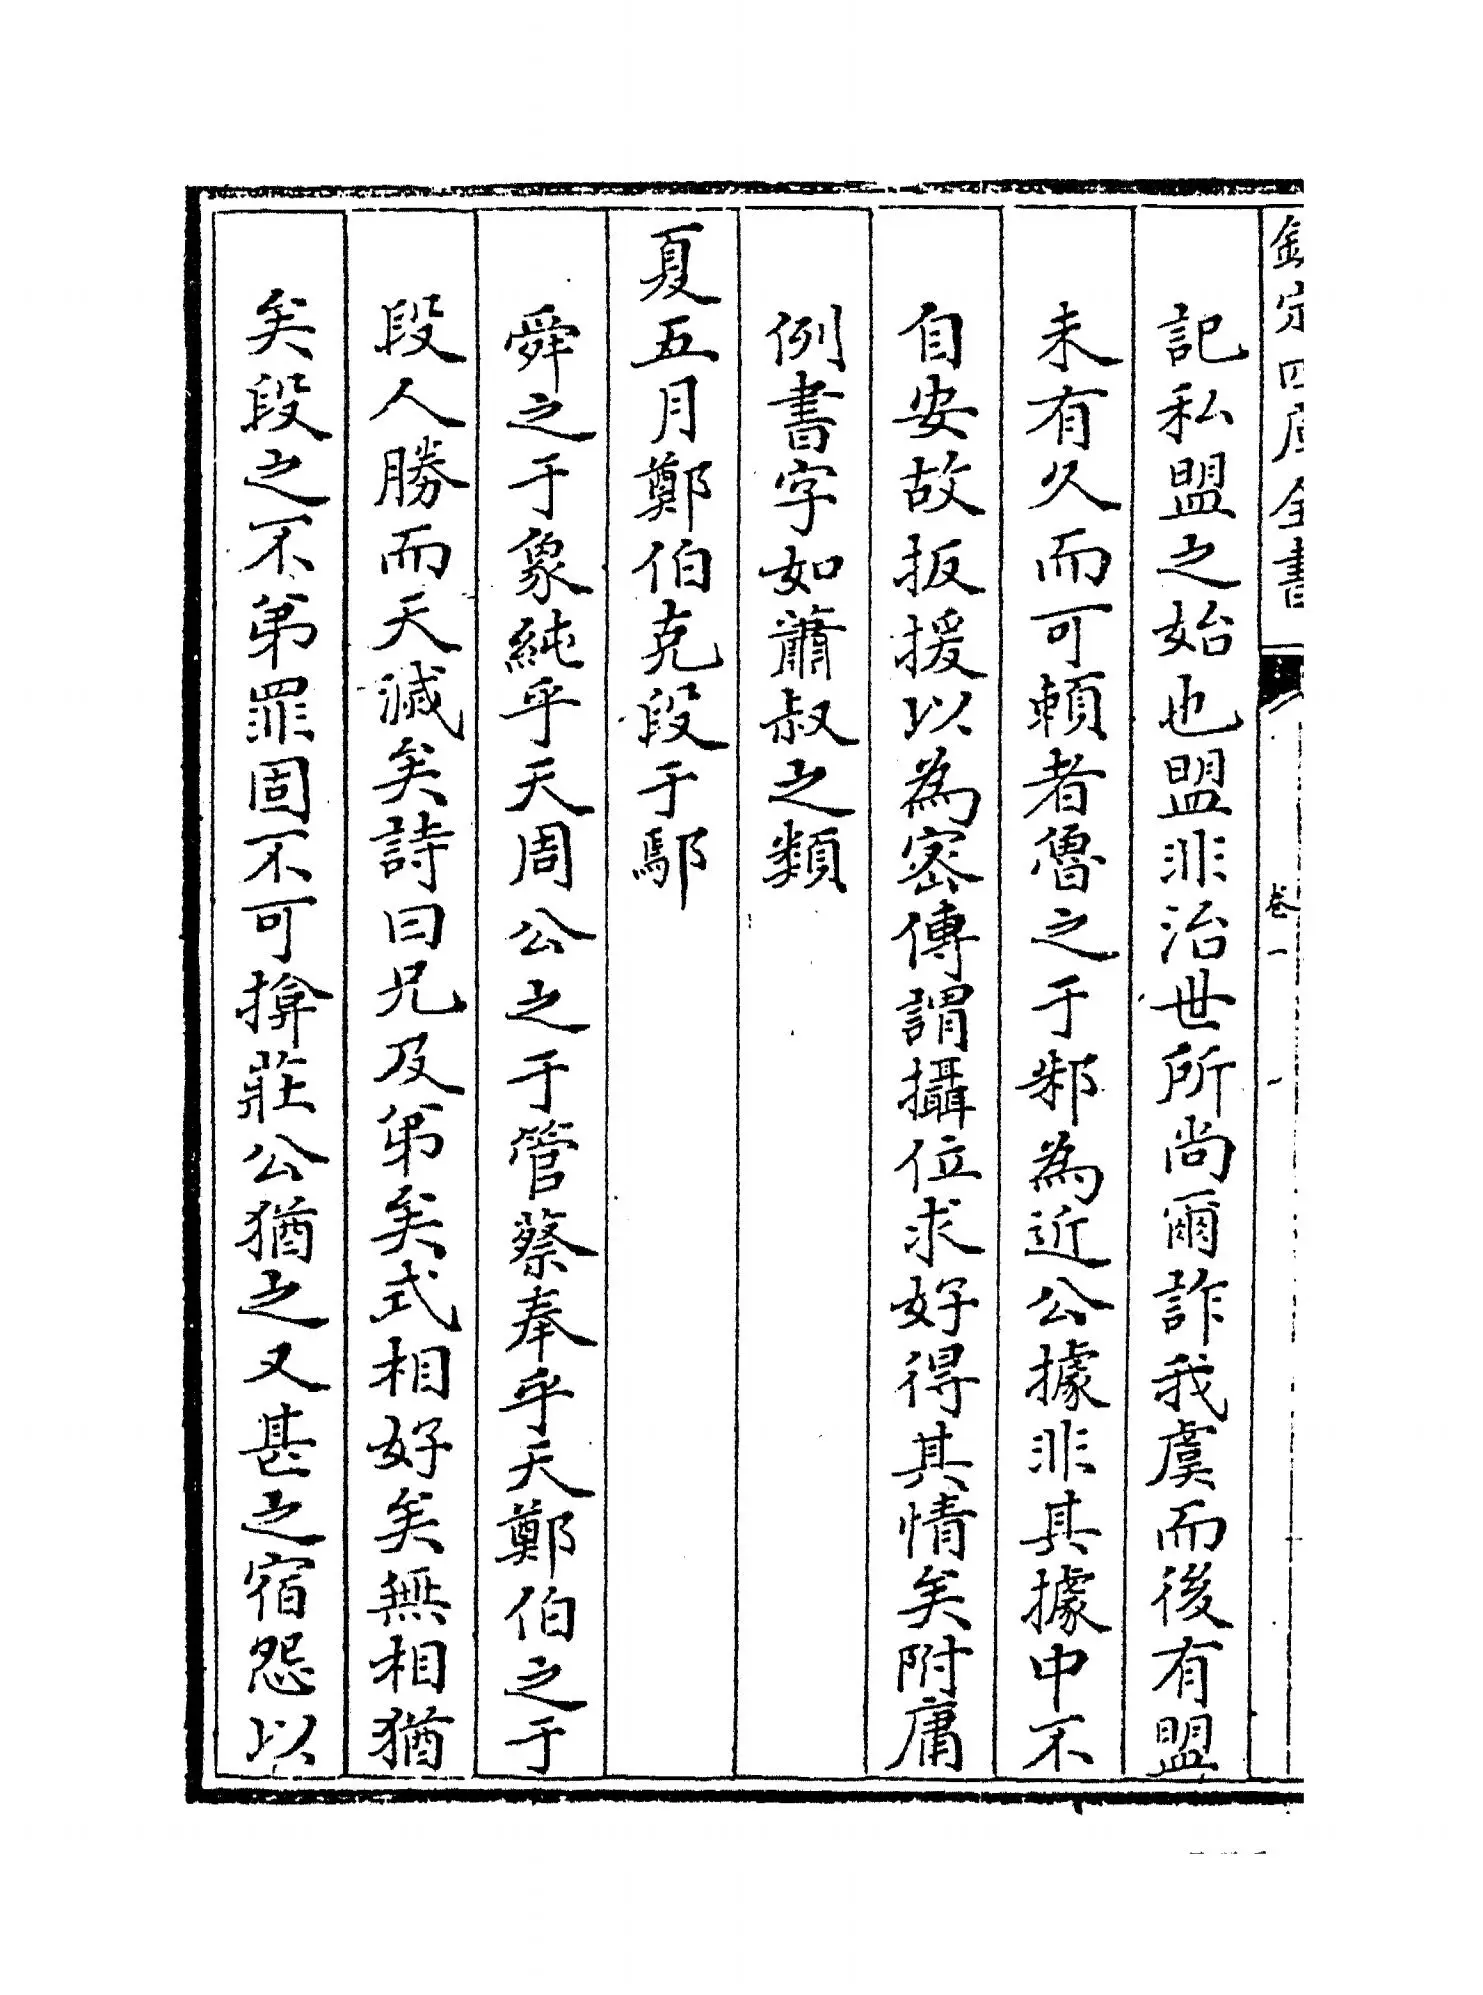 欽定四庫全書
卷一
記私盟之始也盟非治世所尚爾詐我虞而後有盟
未有久而可賴者魯之于邾為近公據非其據中不
自安故扳援以為密傳謂攝位求好得其情矣附庸
例書字如蕭叔之類
夏五月鄭伯克段于鄢
舜之于象純乎天周公之于管蔡奉乎天鄭伯之于
段人勝而天滅矣詩曰兄及弟矣式相好矣無相猶
矣段之不弟罪固不可揜莊公猶之又甚之宿怨以